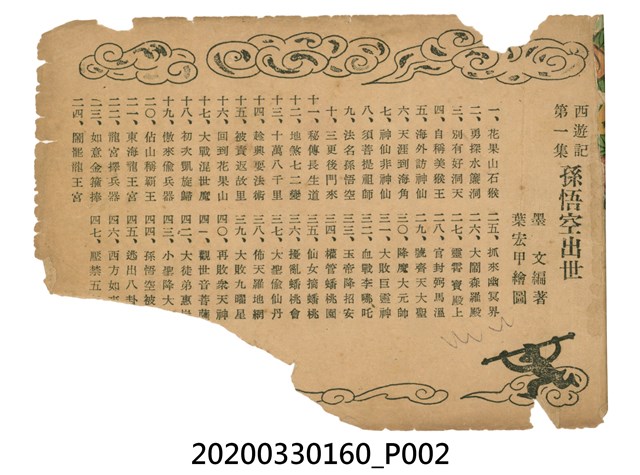 西遊記
第一集
孫悟空出世
墨文編著
葉宏甲繪圖
一、花果山石猴
二、勇探水簾洞
三、別有好洞天
四、自稱美猴王
五、海外訪神仙
六、天涯到海角
七、神仙非神仙
八、須菩提祖師
九、法名孫悟空
十、三更後門來
十一、秘傳長生道
十二、地煞七二變
十三、十萬八千里
十四、趁興耍法術
十五、被責返故里
十六、回到花果山
十七、大戰混世魔
十八、初次凱旋歸
十九、傲來偷兵器
二〇、佔山稱霸王
二一、東海龍王宮
二二、龍宮擇兵器
二三、如意金箍棒
二四、鬧罷龍王宮
二五、抓來幽冥界
二六、大鬧森羅殿
二七、靈霄寶殿上
二八、官封弼馬溫
二九、號齊天大聖
三〇、降魔大元帥
三一、大敗巨靈神
三二、血戰李哪吒
三三、玉帝降招安
三四、權管蟠桃園
三五、仙女摘蟠桃
三六、擾亂蟠桃會
三七、大聖偷仙丹
三八、佈天羅地網
三九、大敗九曜星
四〇、再敗衆天神
四一、觀世音菩薩
四二、大徒弟惠岸
四三、小聖降大
四四、孫悟空被
四五、逃出八卦
四六、西方如來
四七、壓禁五
20200330160_P002